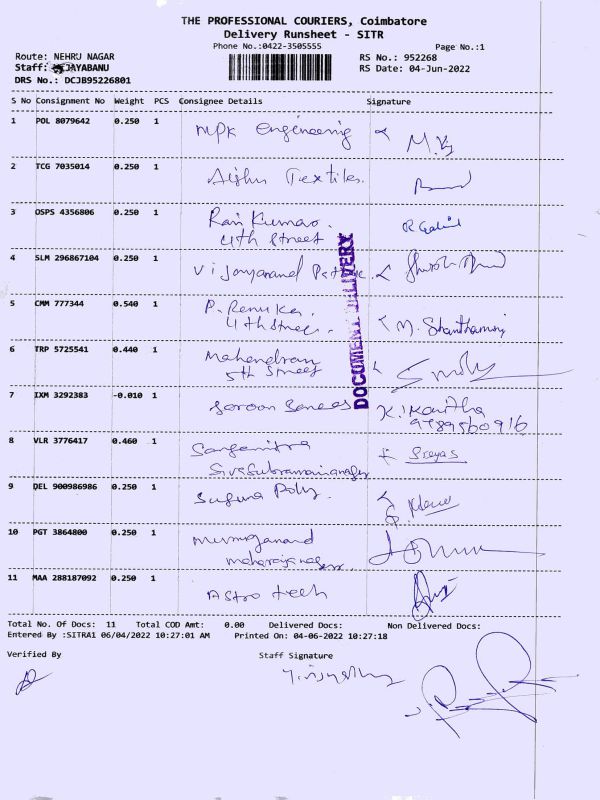 THE PROFESSIONAL COURIERS, Coimbatore
Delivery Runsheet - SITR
Phone No.:0422-3505555
Page No.:1
Route: NEHRU NAGAR
RS No.: 952268
Staff: JAYABANU
RS Date: 04-Jun-2022
DRS No.: DCJB95226801
S No Consignment No Weight PCS Consignee Details Signature
1 POL 8079642 0.250 1 MPK Engineering
2 TCG 7035014 0.250 1 Textiles.
3 OSPS 4356806 0.250 1 Ravi Kumar.
4th Street
4 SLM 296867104 0.250 1
5 CMM 777344 0.540 1 P. Renuka.
4th street. M. Shanthamani
6 TRP 5725541 0.440 1 Mahendran
5th Street
7 IXM 3292383 -0.010 1 K. Kavitha
9789560916
8 VLR 3776417 0.460 1 Sreyas
9 DEL 900986986 0.250 1 Suguna Poly.
10 PGT 3864800 0.250 1 Muruganand
11 MAA 288187092 0.250 1 Astro tech
DOCUMENT DELIVERY
Total No. Of Docs: 11 Total COD Amt: 0.00 Delivered Docs: Non Delivered Docs:
Entered By :SITRA1 06/04/2022 10:27:01 AM Printed On: 04-06-2022 10:27:18
Verified By Staff Signature